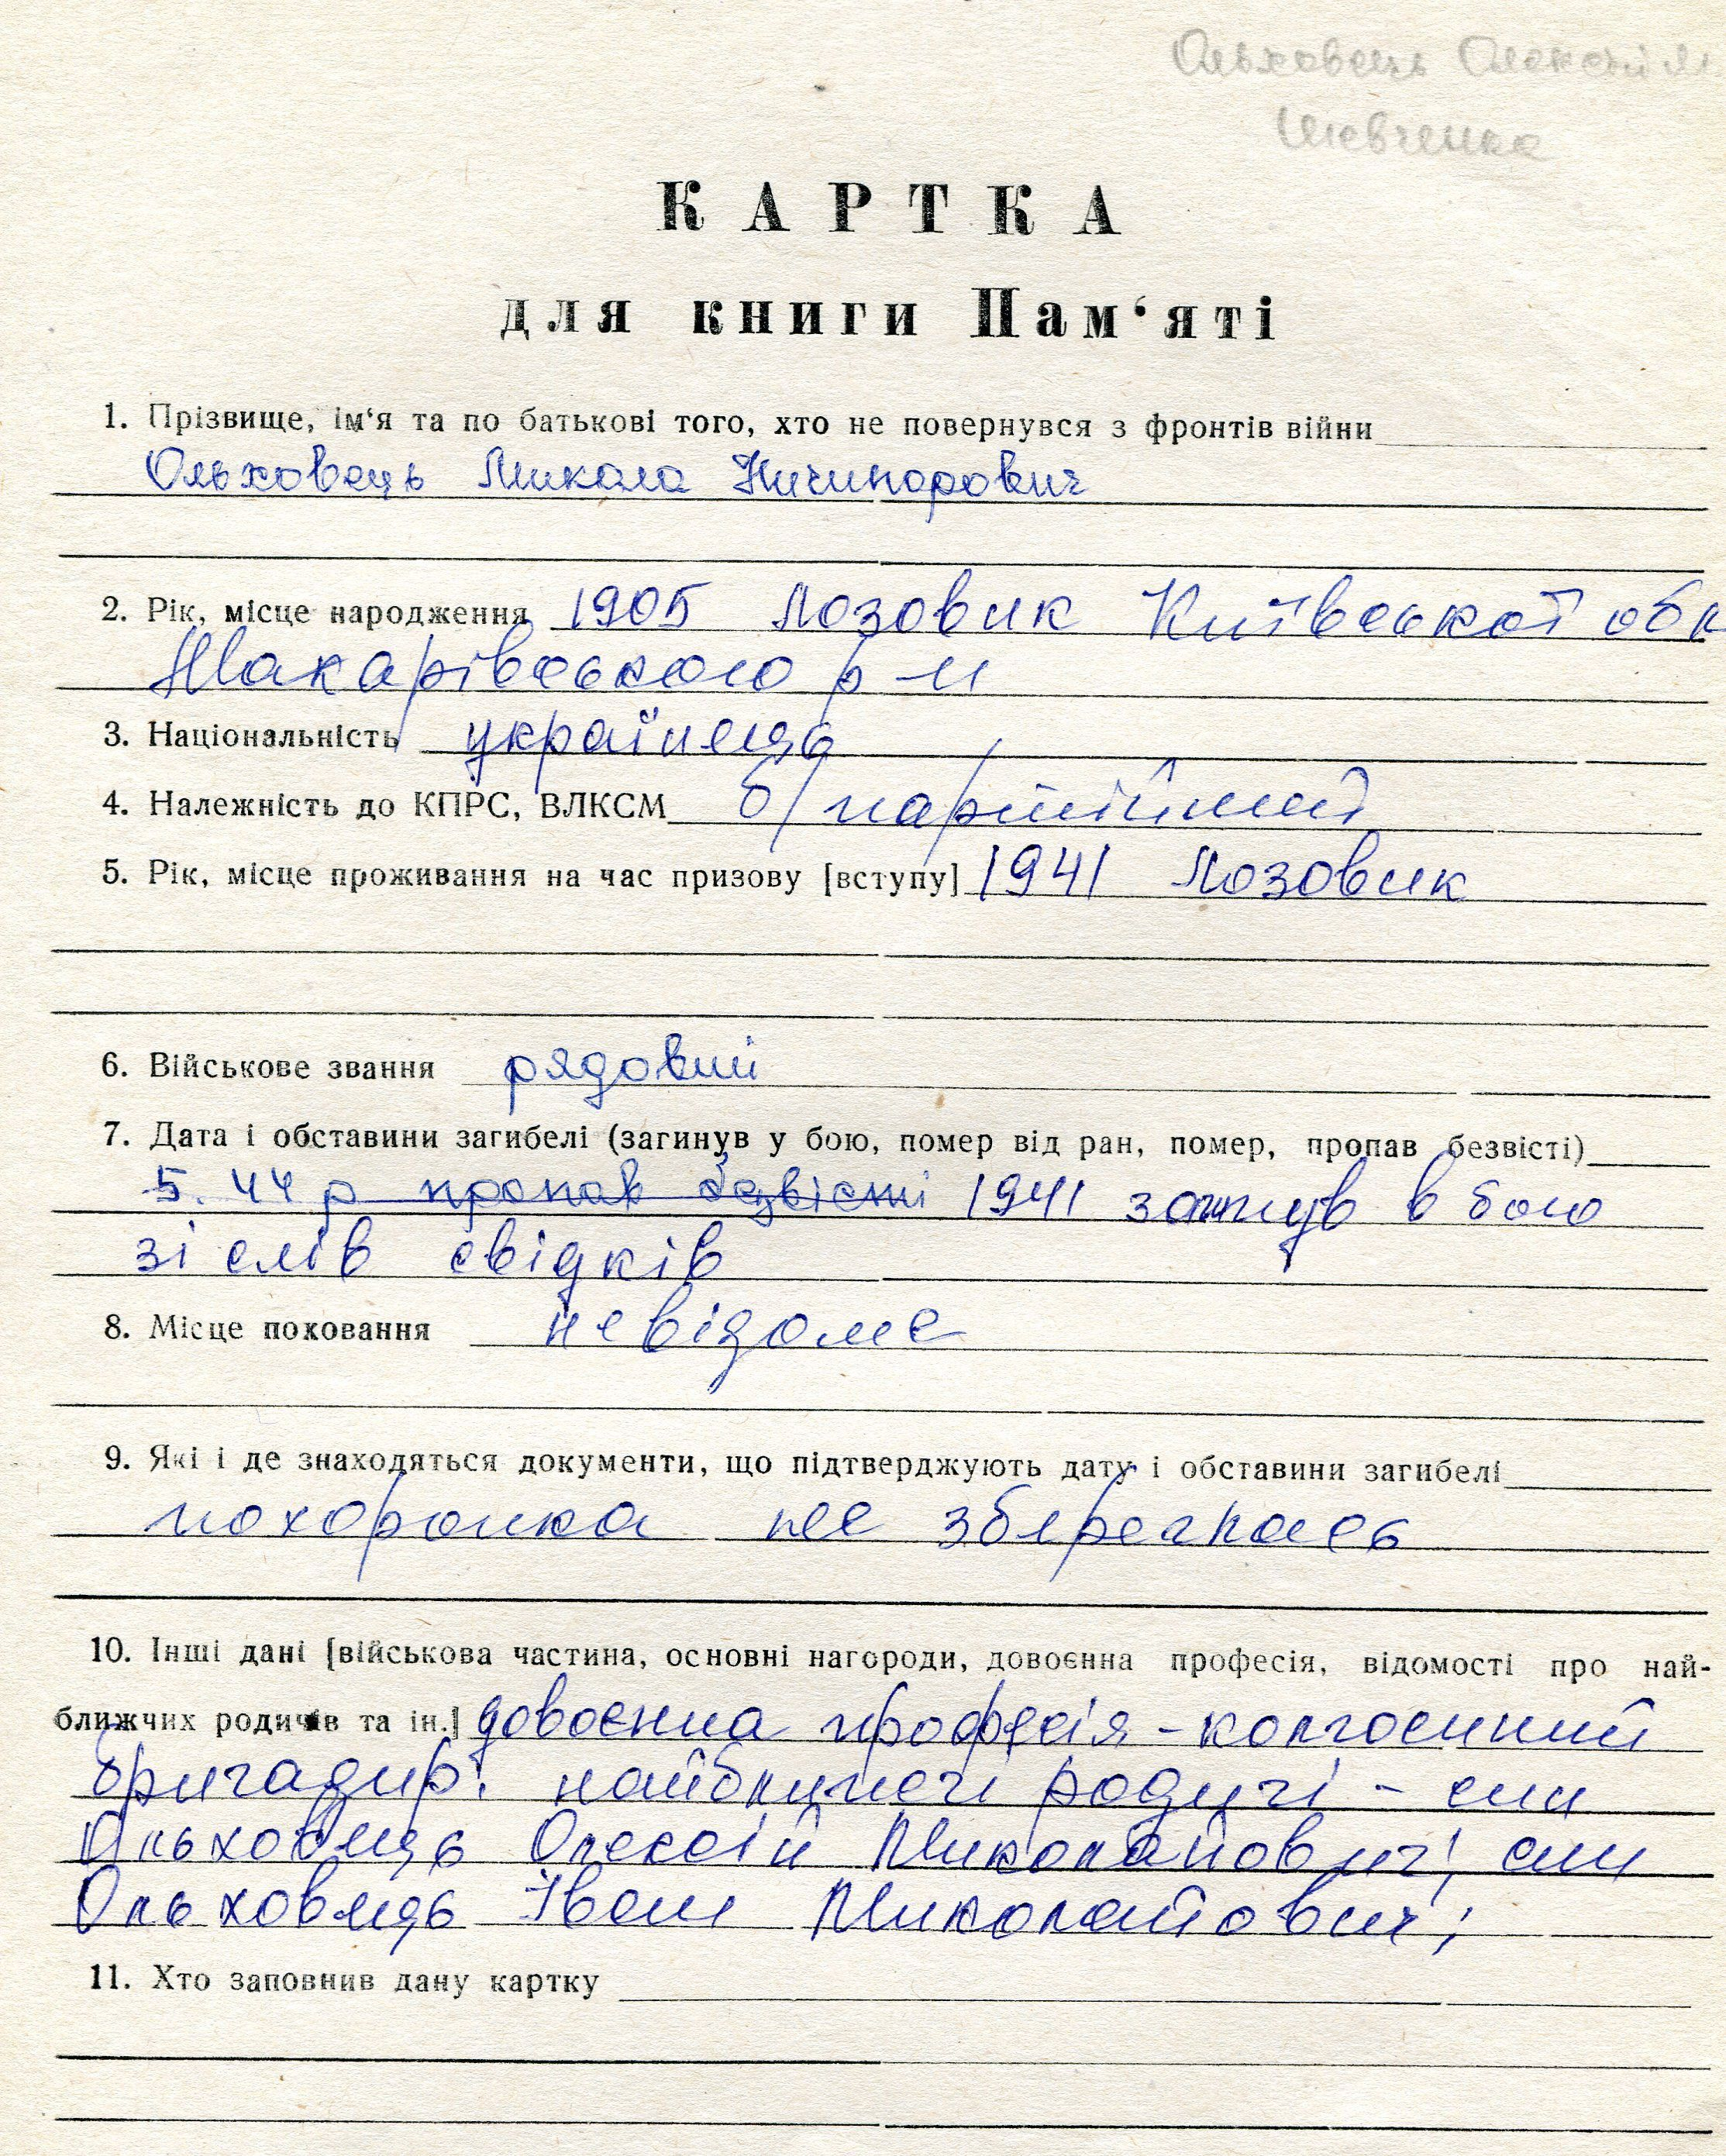 Ольховець Олексій М
Шевченка
КАРТКА
для книги Пам‘яті
1. Прізвище, ім‘я та по батькові того, хто не повернувся з фронтів війни
Ольховець Микола Ничипорович
2. Рік, місце народження 1905 Лозовик Київської обл
Макарівського р-н
3. Національність українець
4. Належність до КПРС, ВЛКСМ б/партійний
5. Рік, місце проживання на час призову [вступу] 1941 Лозовик
6. Військове звання рядовий
7. Дата і обставини загибелі (загинув у бою, помер від ран, помер, пропав безвісті)
5. 44 р пропав безвісті 1941 загинув в бою
зі слів свідків
8. Місце поховання невідоме
9. Які і де знаходяться документи, що підтверджують дату і обставини загибелі
похоронка не збереглась
10. Інші дані [військова частина, основні нагороди, довоєнна професія, відомості про най-
ближчих родичів та ін.] довоєнна професія - колгоспний
бригадир. найближчі родичі - син
Ольховець Олексій Миколайович; син
Ольховець Іван Миколайович;
11. Хто заповнив дану картку